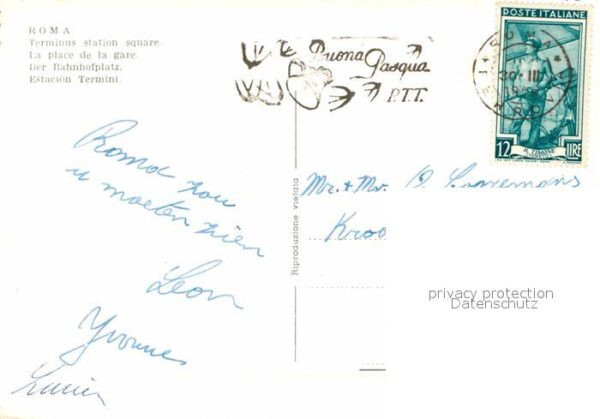 ROMA
Terminus station square.
La place de la gare.
Der Bahnhofplatz.
Estación Termini.
Buona Pasqua
P.T.T.
ROMA
30·III
POSTE ITALIANE
12 IL TIMONE LIRE
Roma zou
u moeten zien
Leon
Yvonne
Lucien
Riproduzione vietata
Mr. + Mw.
Kroo
privacy protection
Datenschutz